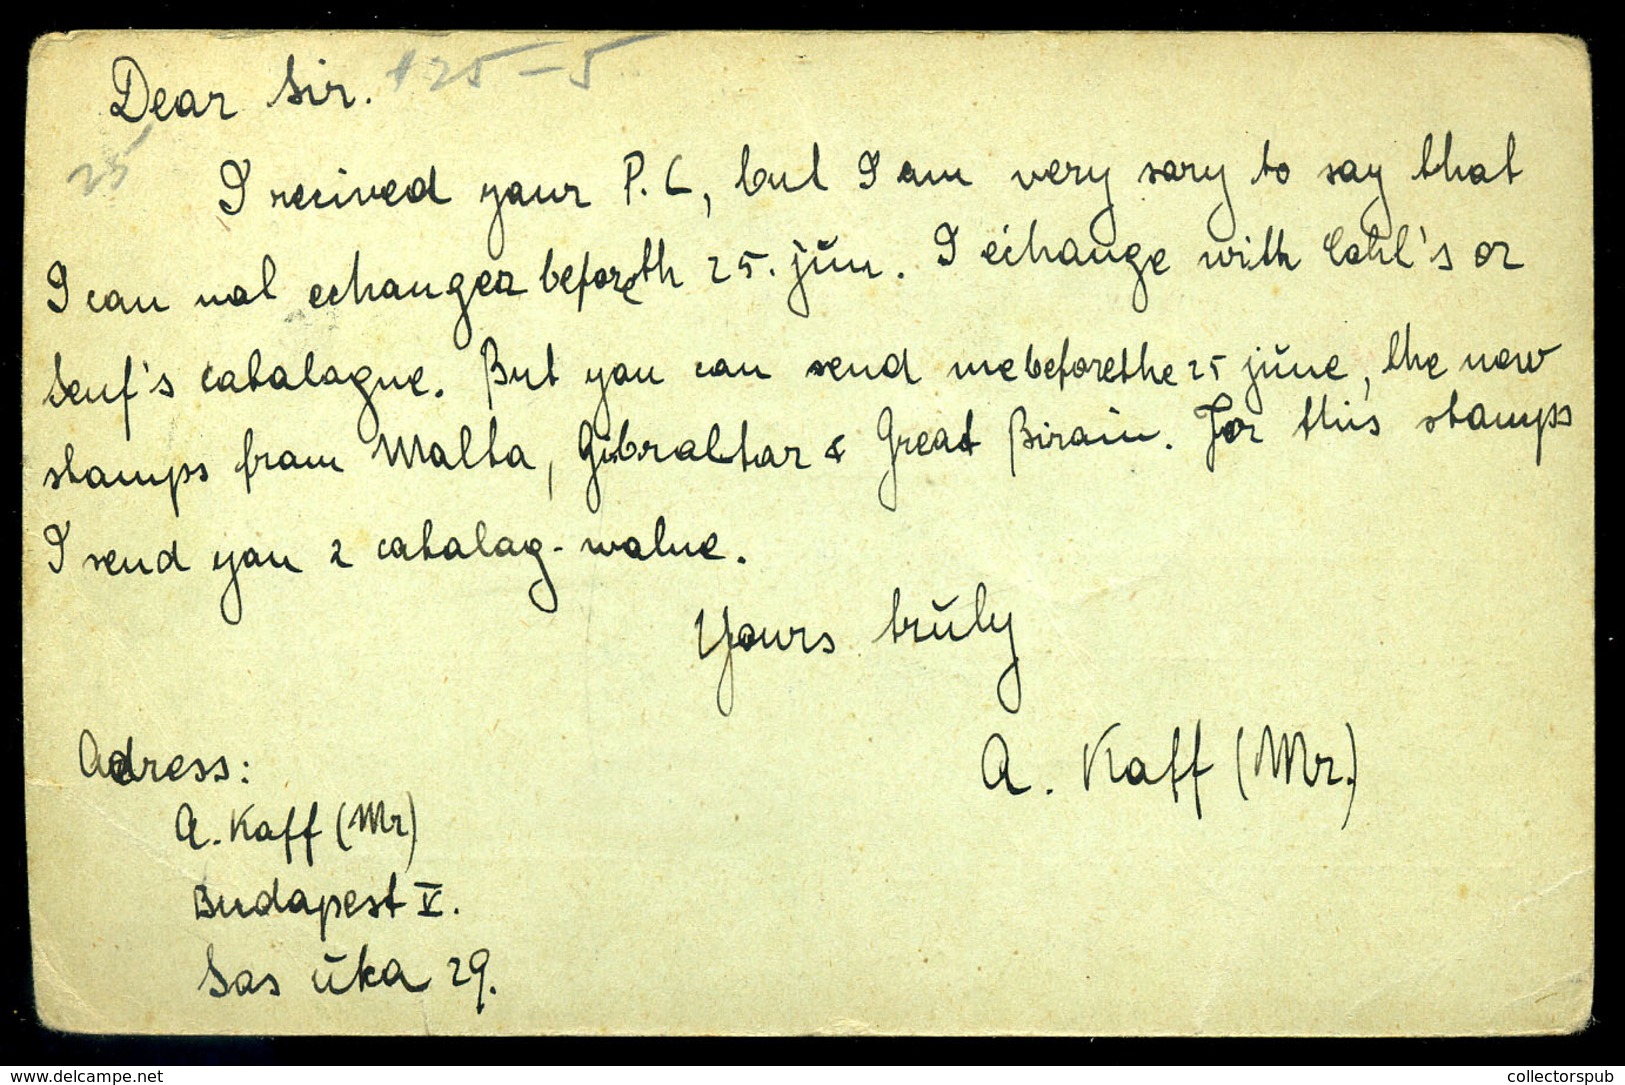 Dear Sir. +25-5
25
I recived your P.C, but I am very sory to say that
I can not echanger beforeth 25. jŭn. I echange with Kohl's or
Senf's catalague. But you can send me beforethe 25 jŭne, the new
stamps from Malta, Gibraltar & Great Birain. For this stamps
I send you 2 catalog-walue.
Yours trŭly
A. Kaff (Mr.)
Adress:
A. Kaff (Mr)
Budapest V.
Sas ŭka 29.
www.delcampe.net
collectorspub